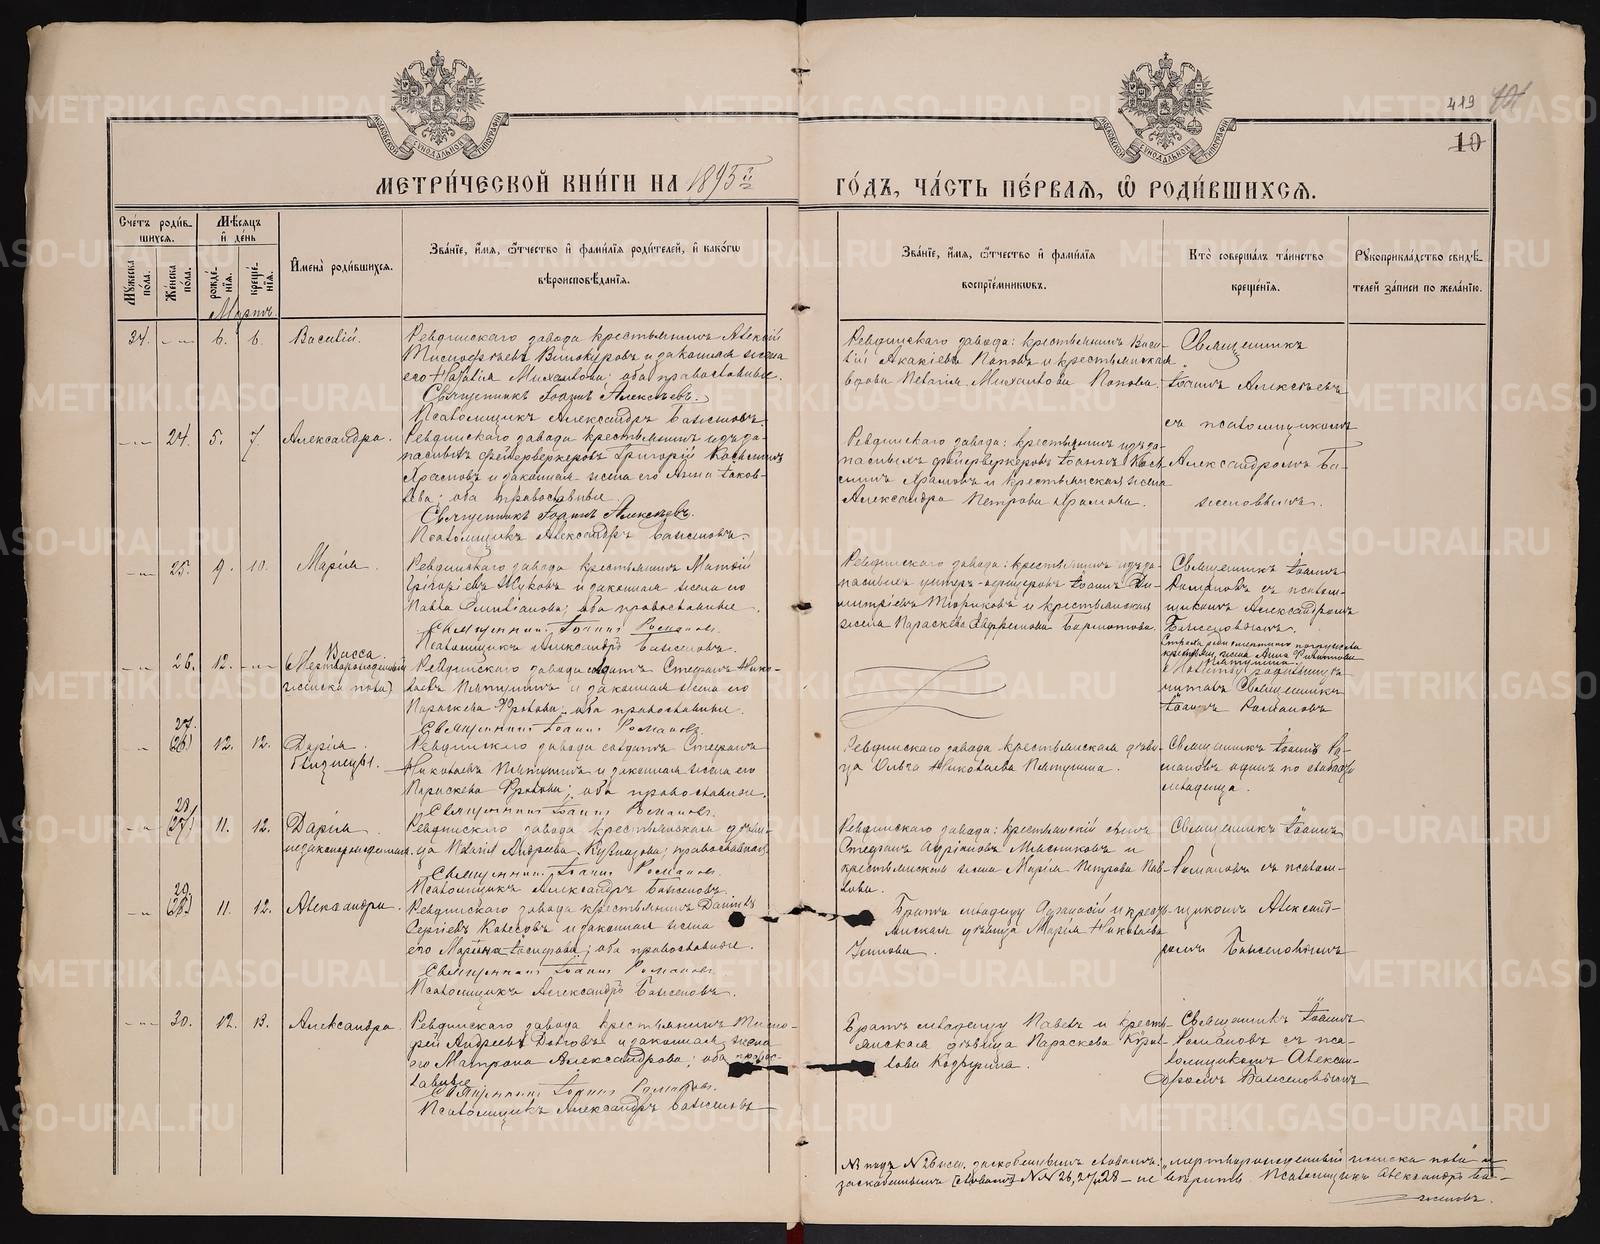 419
10
МЕТРИ́ЧЕСКОЙ КНИ́ГИ НА 1895й
ГО́ДЪ, ЧА́СТЬ ПЕ́РВАЯ, Ѿ РОДИ́ВШИХСЯ.
Сче́тъ роди́в-
шихся.
Мѣсяцъ
и҆ де́нь
Мꙋжеска
по́ла.
Же́нска
по́ла.
рожде́-
нїя.
креще́-
нїя.
И҆мена̀ роди́вшихся.
Зва́нїе, и҆́мя, ѻ҆́тчество и҆ фами́лїя роди́телей, и҆ како́гѡ
вѣроисповѣ́данїя.
Зва́нїе, и҆́мя, ѻ҆́тчество и҆ фами́лїя
воспрїе́мниковъ.
Кто̀ соверша́лъ та́инство
креще́нїя.
Рꙋкоприкла́дство свидѣ́-
телей за́писи по жела́нїю.
Мартъ
34. 6. 6. Василій.
Ревдинскаго завода крестьянинъ Алексій
Винокуровъ и законная жена
его Наталія Михаилова; оба православные.
Священникъ Іоаннъ Алексѣевъ.
Псаломщикъ Александръ Баженовъ.
Ревдинскаго завода: крестьянинъ Васи-
лій Акакіевъ Поповъ и крестьянская
вдова Пелагія Михаилова Попова.
Священникъ
Іоаннъ Алексѣевъ
съ псаломщикомъ
Александромъ Ба-
женовымъ.
24. 5. 7. Александра.
Ревдинскаго завода крестьянинъ изъ за-
пасныхъ фейерверкеровъ Григорій Косминъ
Храмовъ и законная жена его Анна Іаков-
лева; оба православные.
Священникъ Іоаннъ Алексѣевъ.
Псаломщикъ Александръ Баженовъ.
Ревдинскаго завода: крестьянинъ изъ за-
пасныхъ фейерверкеровъ Іоаннъ Кось-
минъ Храмовъ и крестьянская жена
Александра Петрова Храмова.
25. 9. 10. Марія.
Ревдинскаго завода крестьянинъ Матѳій
Григоріевъ Жуковъ и законная жена его
Павла Емиліанова; оба православные.
Священникъ Іоаннъ Романовъ.
Псаломщикъ Александръ Баженовъ.
Ревдинскаго завода: крестьянинъ изъ за-
пасныхъ унтеръ-офицеровъ Іоаннъ Ди-
митріевъ Тюриковъ и крестьянская
жена Параскева Евфимова Бормотова.
Священникъ Іоаннъ
Романовъ съ псалом-
щикомъ Александромъ
Баженовымъ.
26. 12. Васса.
(Мертворожденный
женска пола)
Ревдинскаго завода солдатъ Стефанъ Нико-
лаевъ Пятунинъ и законная жена его
Параскева Фролова; оба православные.
Священникъ Іоаннъ Романовъ.
крестьян. жена Анна
Молитву родильницѣ
читалъ Священникъ
Іоаннъ Романовъ
27.
(26) 12. 12. Дарія.
близнецы.
Ревдинскаго завода солдатъ Стефанъ
Николаевъ Пятунинъ и законная жена его
Параскева Фролова; оба православные.
Священникъ Іоаннъ Романовъ.
Ревдинскаго завода крестьянская дѣви-
ца Ольга Николаева Пятунина.
Священникъ Іоаннъ Ро-
мановъ одинъ по слабости
младенца.
28
(27) 11. 12. Дарія
незаконнорожденная.
Ревдинскаго завода крестьянская дѣви-
ца Пелагія Андреева Кузнецова; православная.
Священникъ Іоаннъ Романовъ.
Псаломщикъ Александръ Баженовъ.
Ревдинскаго завода: крестьянскій сынъ
Стефанъ Адріановъ Мясниковъ и
крестьянская жена Марія Петрова Пав-
лова.
Священникъ Іоаннъ
Романовъ съ псалом-
щикомъ Александ-
ромъ Баженовымъ
29.
(28) 11. 12. Александра.
Ревдинскаго завода крестьянинъ Даніилъ
Сергіевъ Колесовъ и законная жена
его Марина; оба православные.
Священникъ Іоаннъ Романовъ.
Псаломщикъ Александръ Баженовъ.
Братъ младенцу Аѳанасій и кресть-
янская дѣвица Марія Николаева
30. 12. 13. Александра.
Ревдинскаго завода крестьянинъ Тимо-
ѳей Андреевъ и законная жена
его Матрона Александрова; оба правос-
лавные
Священникъ Іоаннъ Романовъ.
Псаломщикъ Александръ Баженовъ
Братъ младенцу Павелъ и кресть-
янская дѣвица Параскева Кирил-
лова Козырина.
Священникъ Іоаннъ
Романовъ съ пса-
ломщикомъ Алексан-
дромъ Баженовымъ
№ подъ № 26 жен. заскобленнымъ словамъ: „мертворожденный женска пола" и
заскобленнымъ [словамъ] №№ 26, 27 и 28 – не вѣрить. Псаломщикъ Александръ Ба-
женовъ.
METRIKI.GASO-URAL.RU